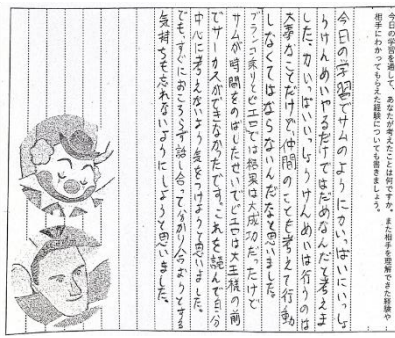 今日の学習を通して、あなたが考えたことは何ですか。また相手を理解できた経験や
相手にわかってもらえた経験についても書きましょう。
今日の学習でサムのように力いっぱいにいっしょ
うけんめいやるだけではだめなんだと考えま
した。力いっぱいいっしょうけんめいは行うのは
大事なことだけど、仲間のことも考えて行動
しなくてはならないんだなと思いました。
ブランコ乗りとピエロでは結果は大成功だったけど
サムが時間をのばしたせいでピエロは大王様の前
でサーカスができなかったです。これを読んで自分
中心に考えないよう気をつけようと思いました。
でも、すぐにおこらず話し合って分かり合おうとする
気持ちも忘れないようにしようと思いました。